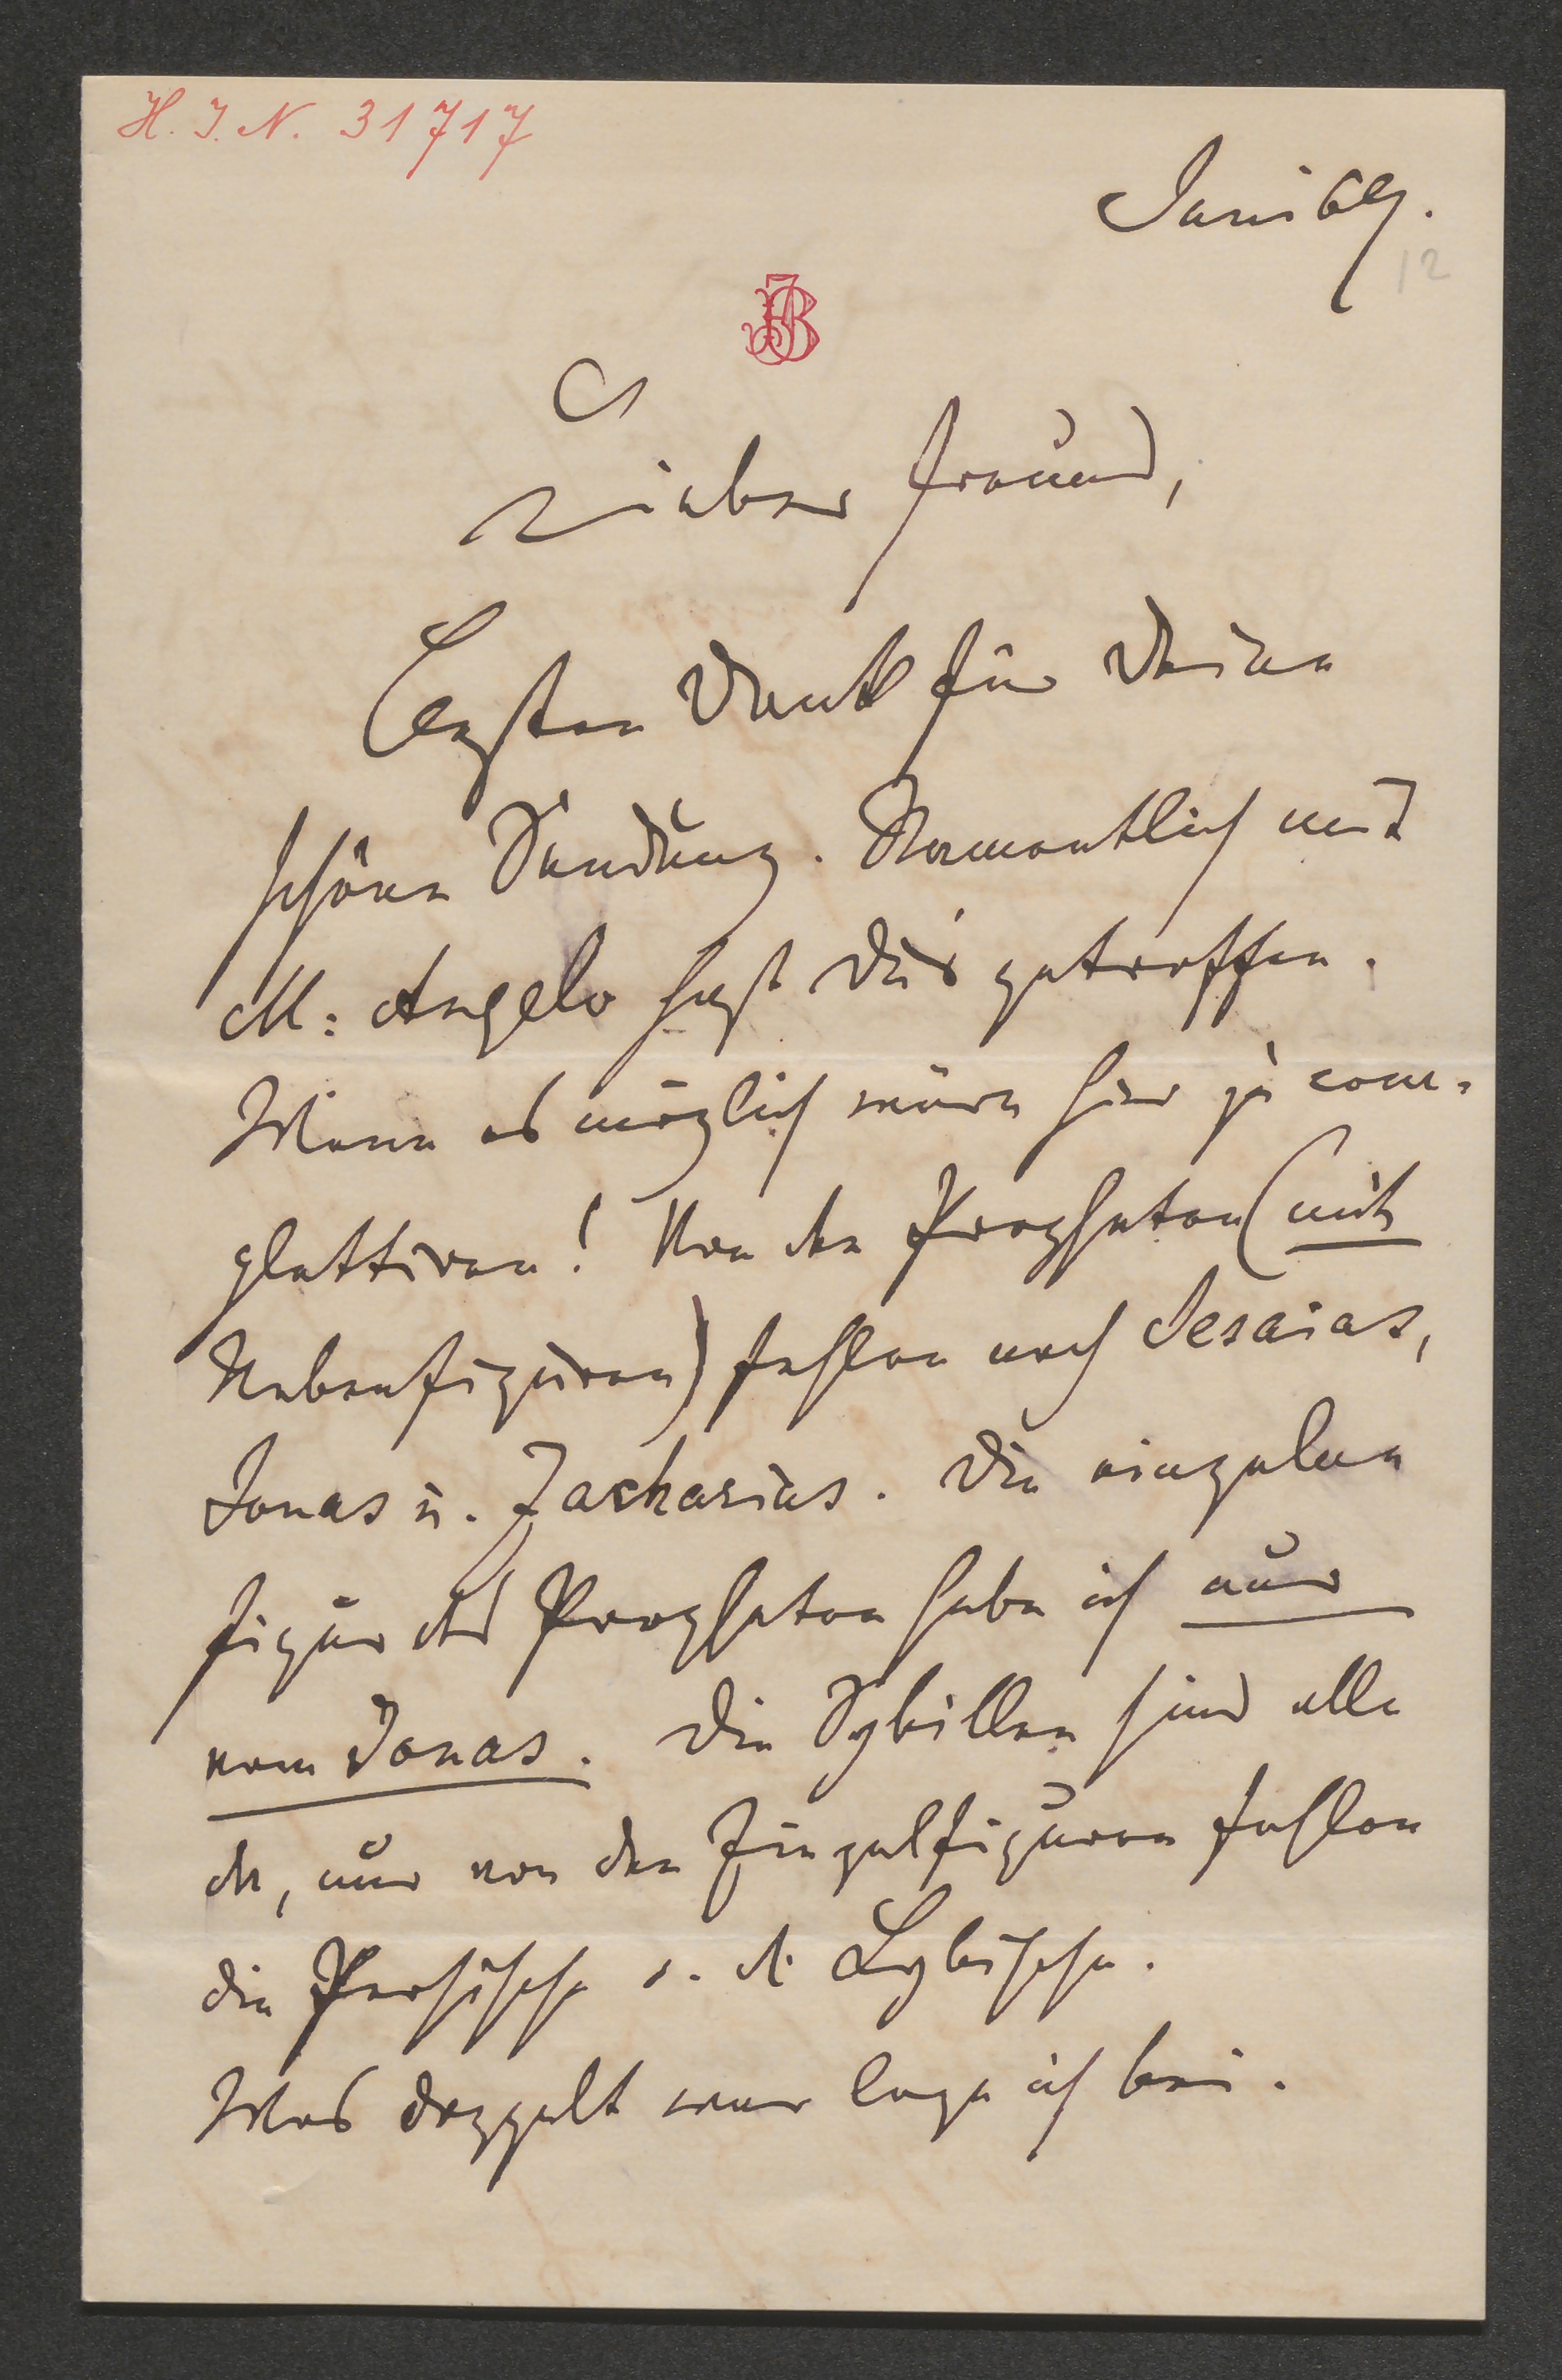 H. I. N. 31717
Juni 69.
12
JB
Lieber Freund,
Besten Dank für Deine
schöne Sendung. Namentlich mit
M: Angelo hast Du's getroffen.
Wenn es möglich wäre hier zu com-
plettiren! Von den Propheten (mit
Nebenfiguren) fehlen noch Jesaias,
Jonas u. Zacharias. Die einzelne
Figur des Propheten habe ich nur
vom Jonas. Die Sybillen sind alle
da, nur von den Einzelfiguren fehlen
die Persische u. d. Lybische.
Was doppelt war lege ich bei.